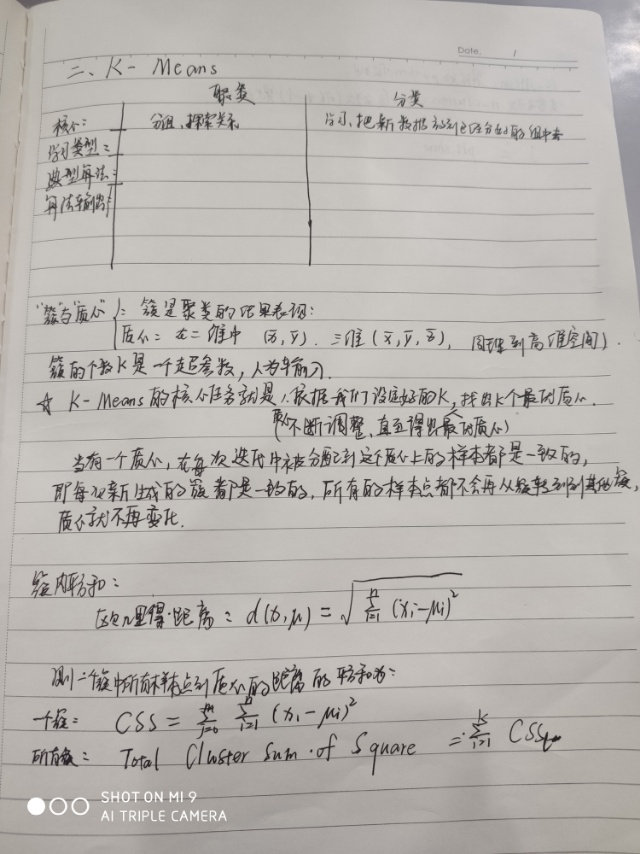 Date. /
二、K- Means
聚类 分类
核心: 分组、探索关系 学习、把新数据放到已分好的组中去
学习类型:
典型算法:
算法输出:
"簇"与"质心": 簇是聚类的结果表现:
质心: 在二维中 (x̄, ȳ). 三维 (x̄, ȳ, z̄), 同理到高维空间).
簇的个数K是一个超参数, 人为输入.
☆ K-Means的核心任务就是, 根据我们设定好的K, 找出K个最优质心.
(不断调整, 直至得出最优质心)
当有一个质心, 在每次迭代中被分配到这个质心上的样本都是一致的,
即每次新生成的簇都是一致的, 所有的样本点都不会再从簇转到到其他簇,
质心就不再变化.
簇内平方和:
欧几里得·距离: d(x,μ) = √∑ⁿᵢ₌₁ (xᵢ-μᵢ)²
则一个簇中所有样本点到质心的距离的平方和为:
一个簇: CSS = ∑ᵐⱼ₌₀ ∑ⁿᵢ₌₁ (xᵢ - μᵢ)²
所有簇: Total Cluster Sum of Square = ∑ᵏᵢ₌₁ CSS
SHOT ON MI 9
AI TRIPLE CAMERA